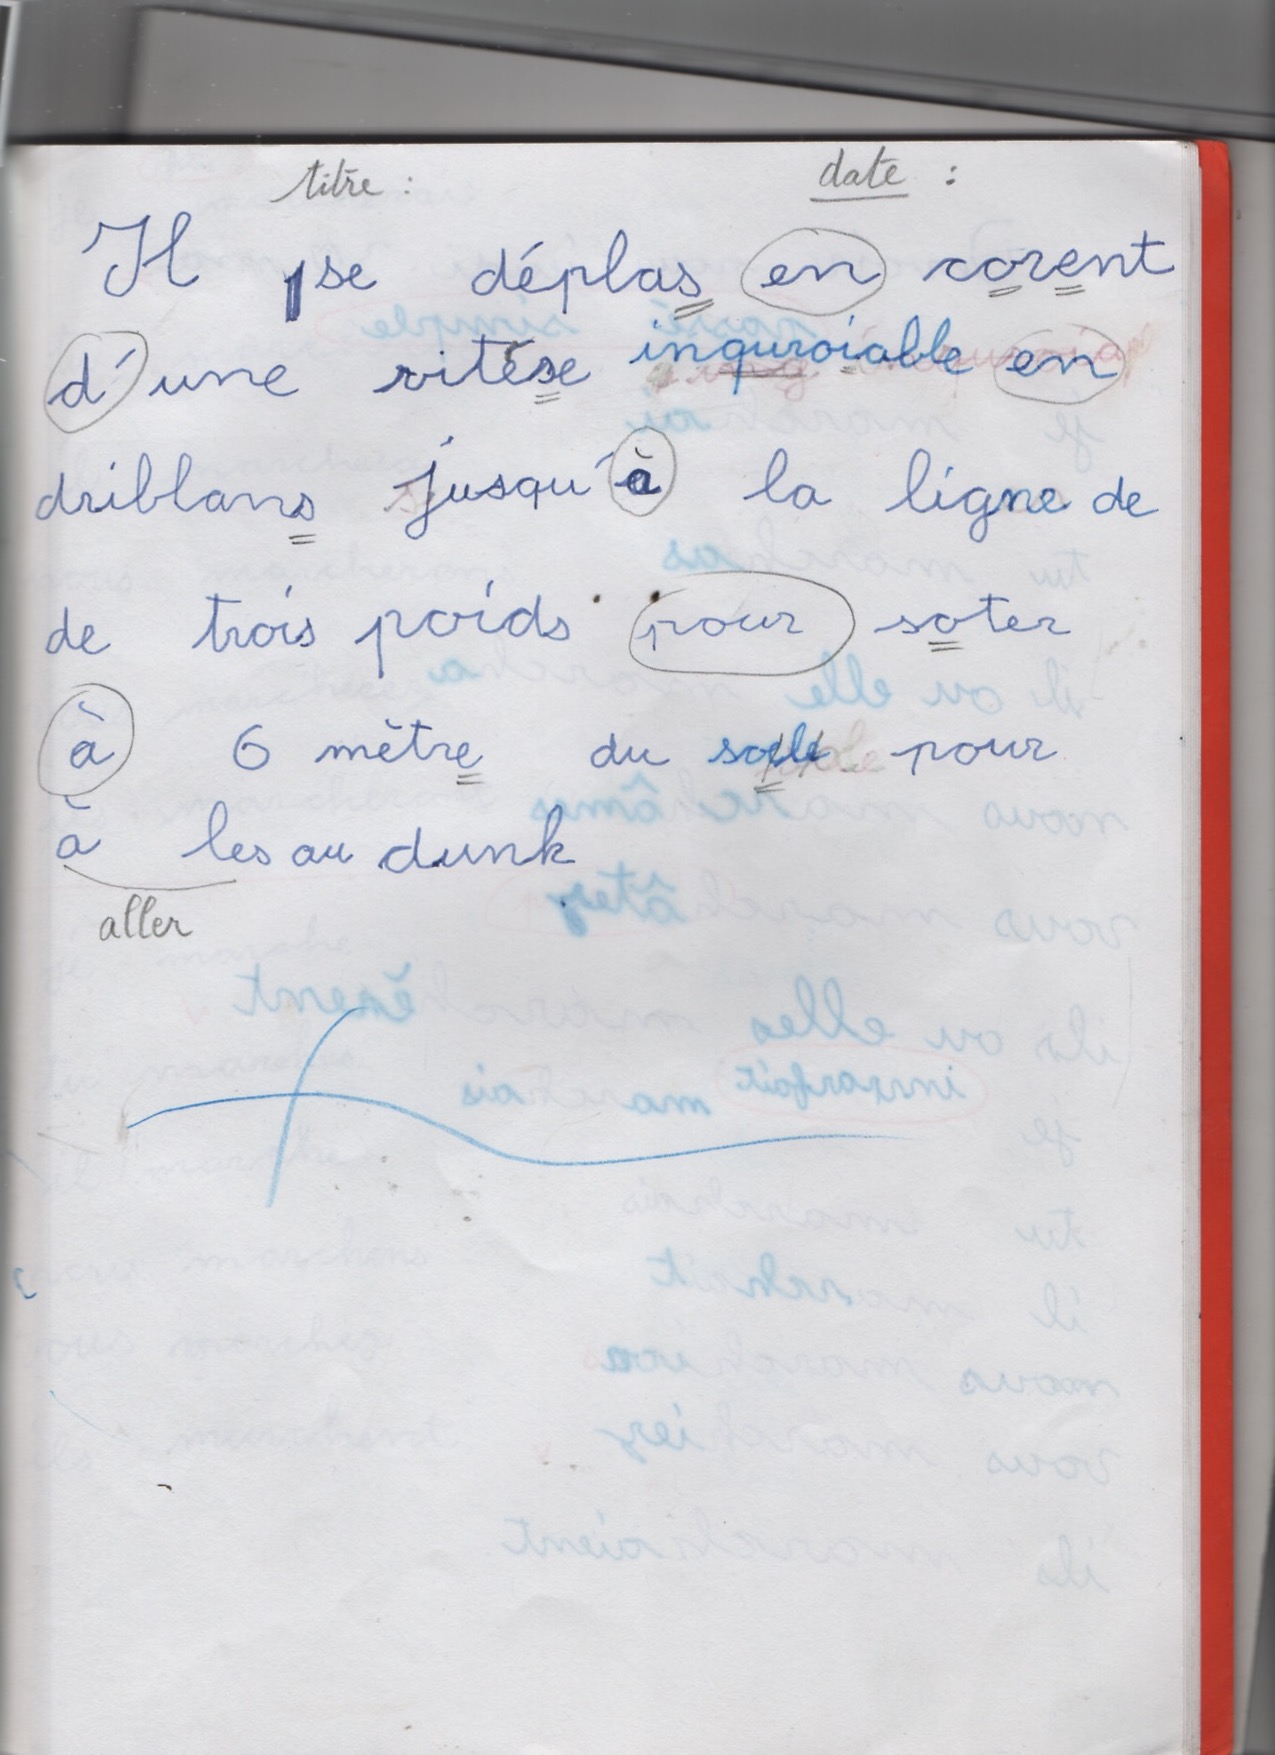 titre : date :
Il se déplas en corent
d'une vitése inquroiable en
driblans jusqu'à la ligne de
de trois poids pour soter
à 6 mètre du sole pour
à les au dunk
aller